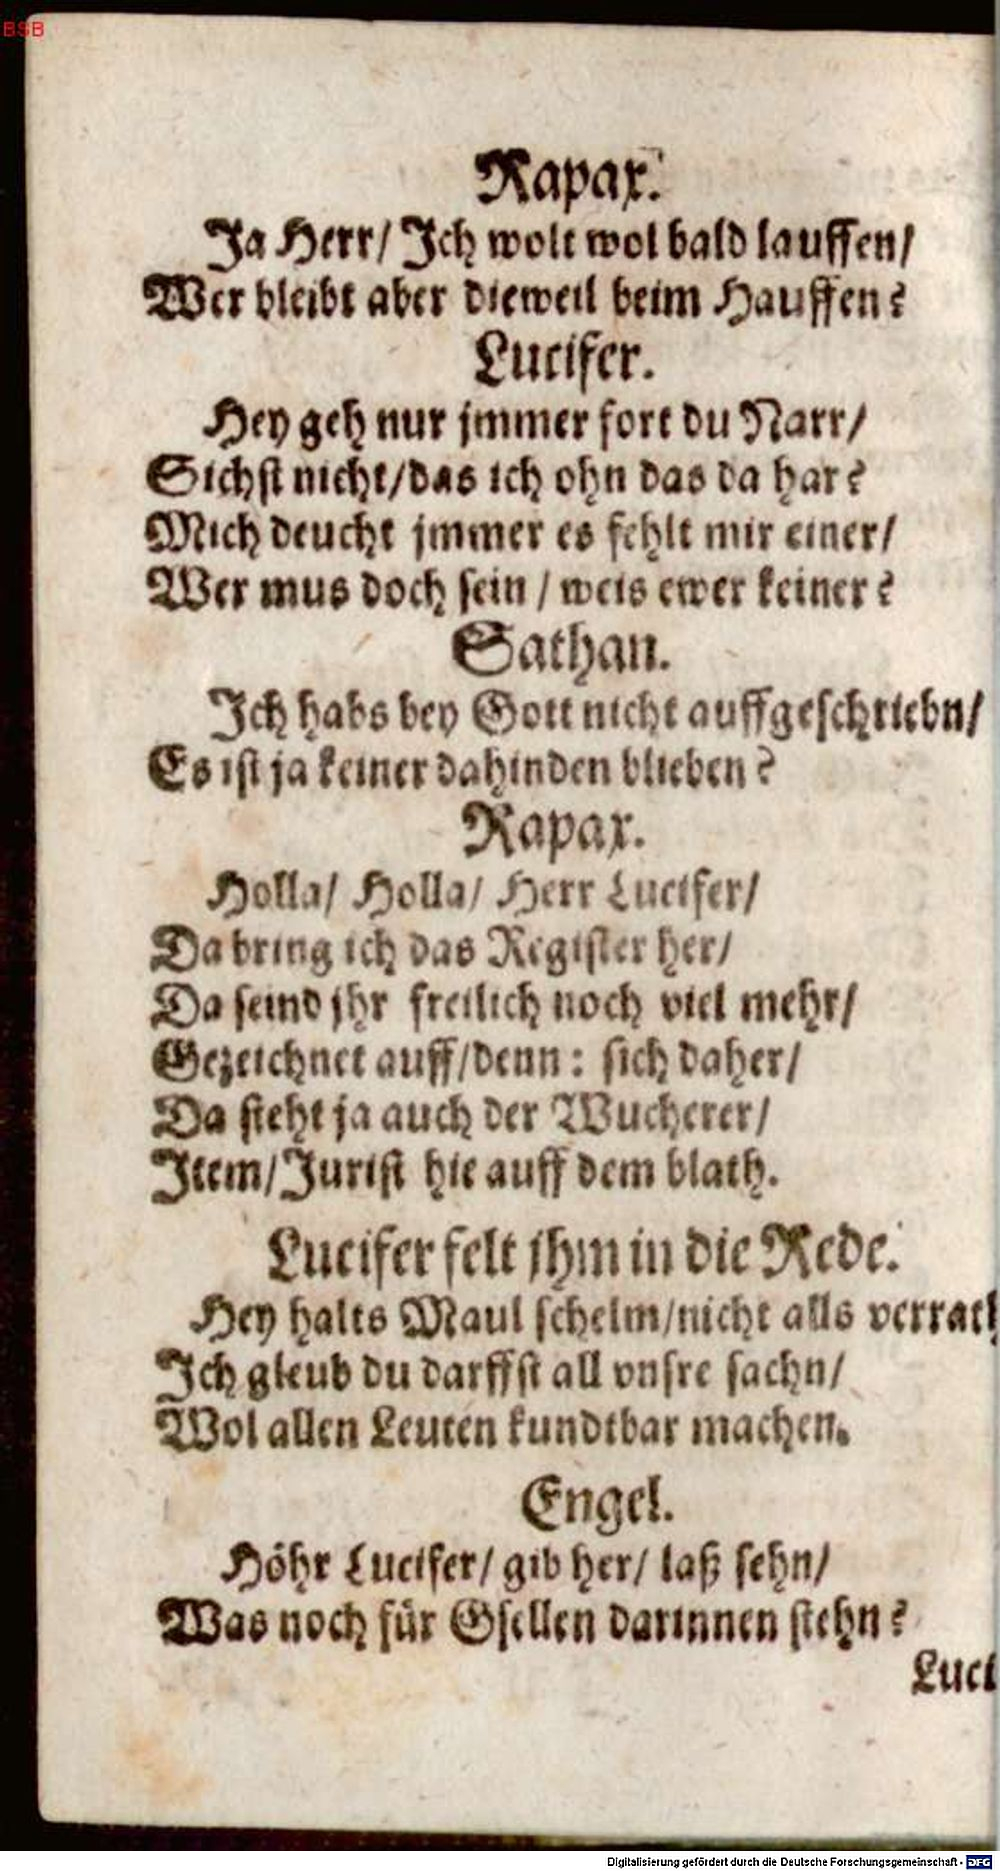 BSB
Rapax.
Ja Herr/ Ich wolt wol bald lauffen/
Wer bleibt aber dieweil beim Hauffen?
Lucifer.
Hey geh nur jmmer fort du Narr/
Sichst nicht/das ich ohn das da har?
Mich deucht jmmer es fehlt mir einer/
Wer mus doch sein / weis ewer keiner?
Sathan.
Ich habs bey Gott nicht auffgeschriebn/
Es ist ja keiner dahinden blieben?
Rapax.
Holla/ Holla/ Herr Lucifer/
Da bring ich das Register her/
Da seind jhr freilich noch viel mehr/
Gezeichnet auff/denn: sich daher/
Da steht ja auch der Wucherer/
Item/Jurist hie auff dem blath.
Lucifer felt jhm in die Rede.
Hey halts Maul schelm/nicht alls verrath
Ich gleub du darffst all vnsre sachn/
Wol allen Leuten kundtbar machen.
Engel.
Höhr Lucifer/ gib her/ laß sehn/
Was noch für Gsellen darinnen stehn?
Luci
Digitalisierung gefördert durch die Deutsche Forschungsgemeinschaft - DFG